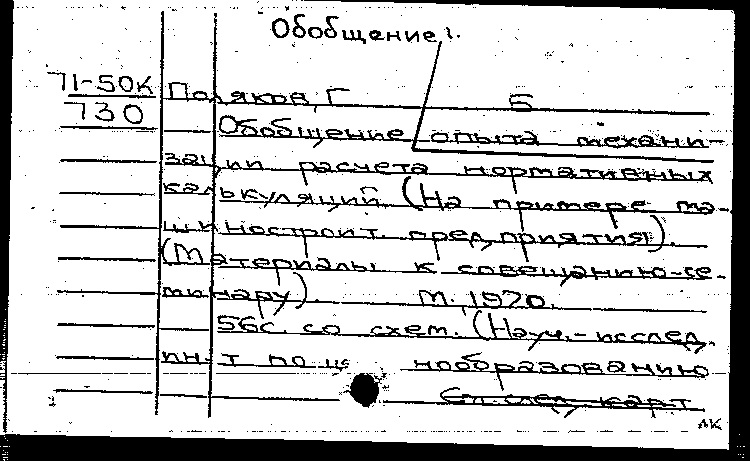 Обобщение 1.
71-50к
730
Поляков, Г Б
Обобщение опыта механи-
зации расчета нормативных
калькуляций (На примере ма-
шиностроит. предприятия).
(Материалы к совещанию-се-
минару). М., 1970.
56с. со схем. (Науч.-исслед.
ин-т по це нообразованию
См. след. карт
лк